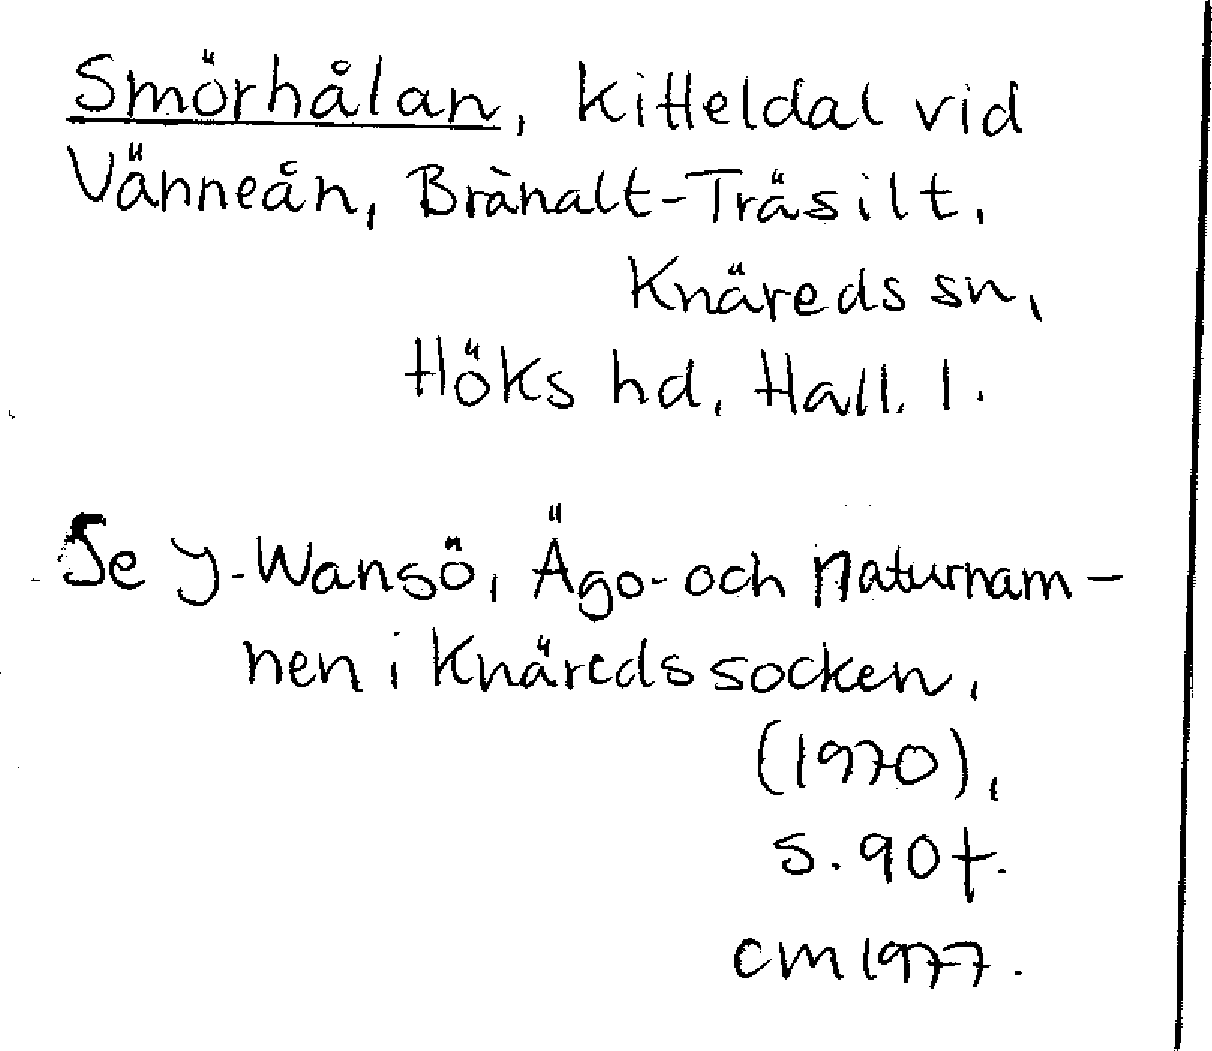 Smörhålan, Kitteldal vid
Vänneån, Brånalt-Träsilt,
Knäreds sn,
Höks hd, Hall. l.
Se Y. Wansö, Ägo- och naturnam-
nen i Knäreds socken,
(1970),
s. 90 f.
CM 1977.